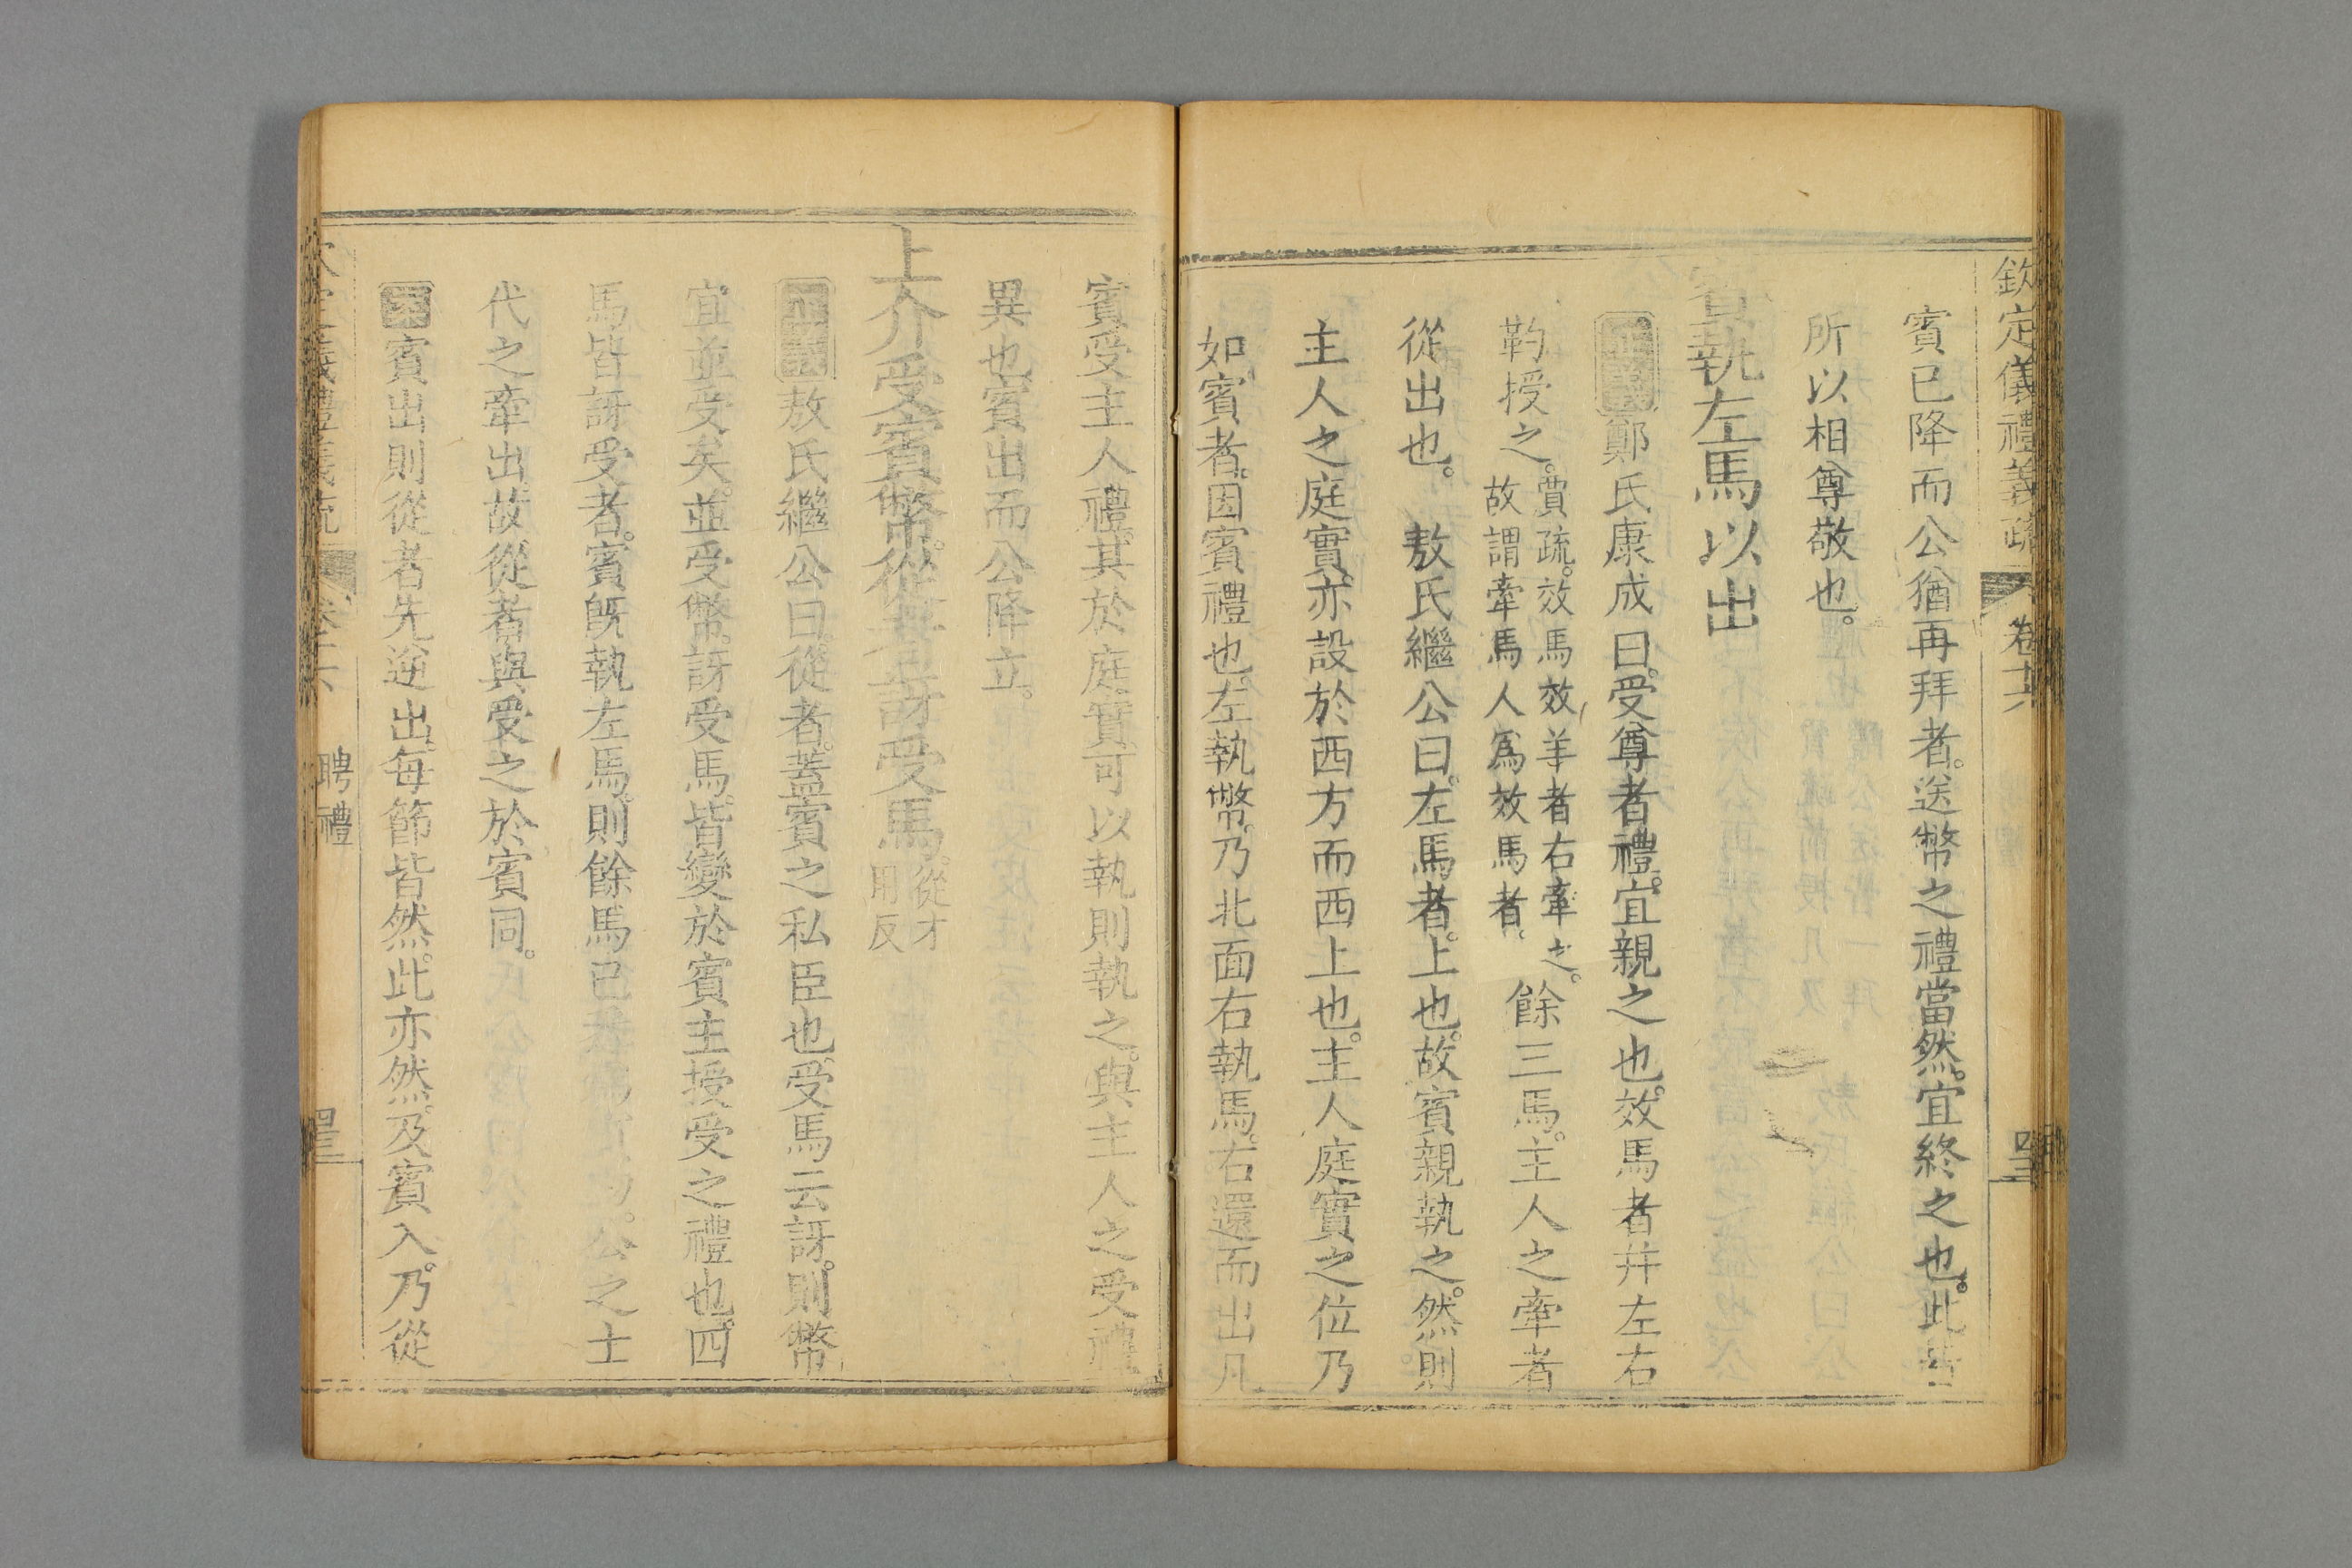 欽定儀禮義疏 卷十六
賓已降而公猶再拜者。送幣之禮當然。宜終之也。此皆
所以相尊敬也。
賓執左馬以出
正義鄭氏康成曰。受尊者禮。宜親之也。效馬者并左右
靮授之。賈疏。效馬效羊者右牽之。
故謂牽馬人爲效馬者。餘三馬。主人之牽者
從出也。 敖氏繼公曰。左馬者。上也。故賓親執之。然則
主人之庭實。亦設於西方而西上也。主人庭實之位乃
如賓者。因賓禮也。左執幣。乃北面右執馬。右還而出。凡
賓受主人禮。其於庭實可以執則執之。與主人之受禮
異也。賓出而公降立。
上介受賓幣。從者訝受馬。從才
用反
正義敖氏繼公曰。從者。蓋賓之私臣也。受馬云訝。則幣
宜並受矣。並受幣。訝受馬。皆變於賓主授受之禮也。四
馬皆訝受者。賓旣執左馬。則餘馬已
公之士
代之牽出。故從者與受之於賓同。
案賓出則從者先逆出。每節皆然。此亦然。及賓入。乃從
聘禮